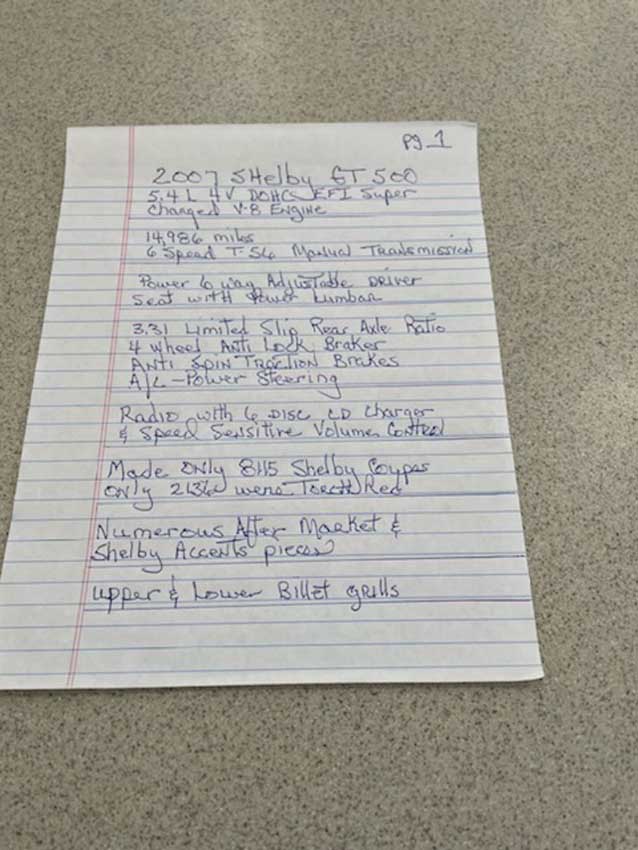 pg 1
2007 SHelby GT 500
5.4 L 4V DOHC EFI Super
Charged V-8 Engine
14,986 miles
6 Speed T-56 Manual Transmission
Power 6 way Adjustable Driver
Seat with Power Lumbar
3.31 Limited Slip Rear Axle Ratio
4 wheel Anti Lock Brakes
Anti Spin Traction Brakes
A/C - Power Steering
Radio with 6 Disc CD Charger
& Speed Sensitive Volume Control
Made Only 8115 Shelby Coupes
Only 2136 were Torch Red
Numerous After Market &
Shelby Accents pieces
upper & Lower Billet grills